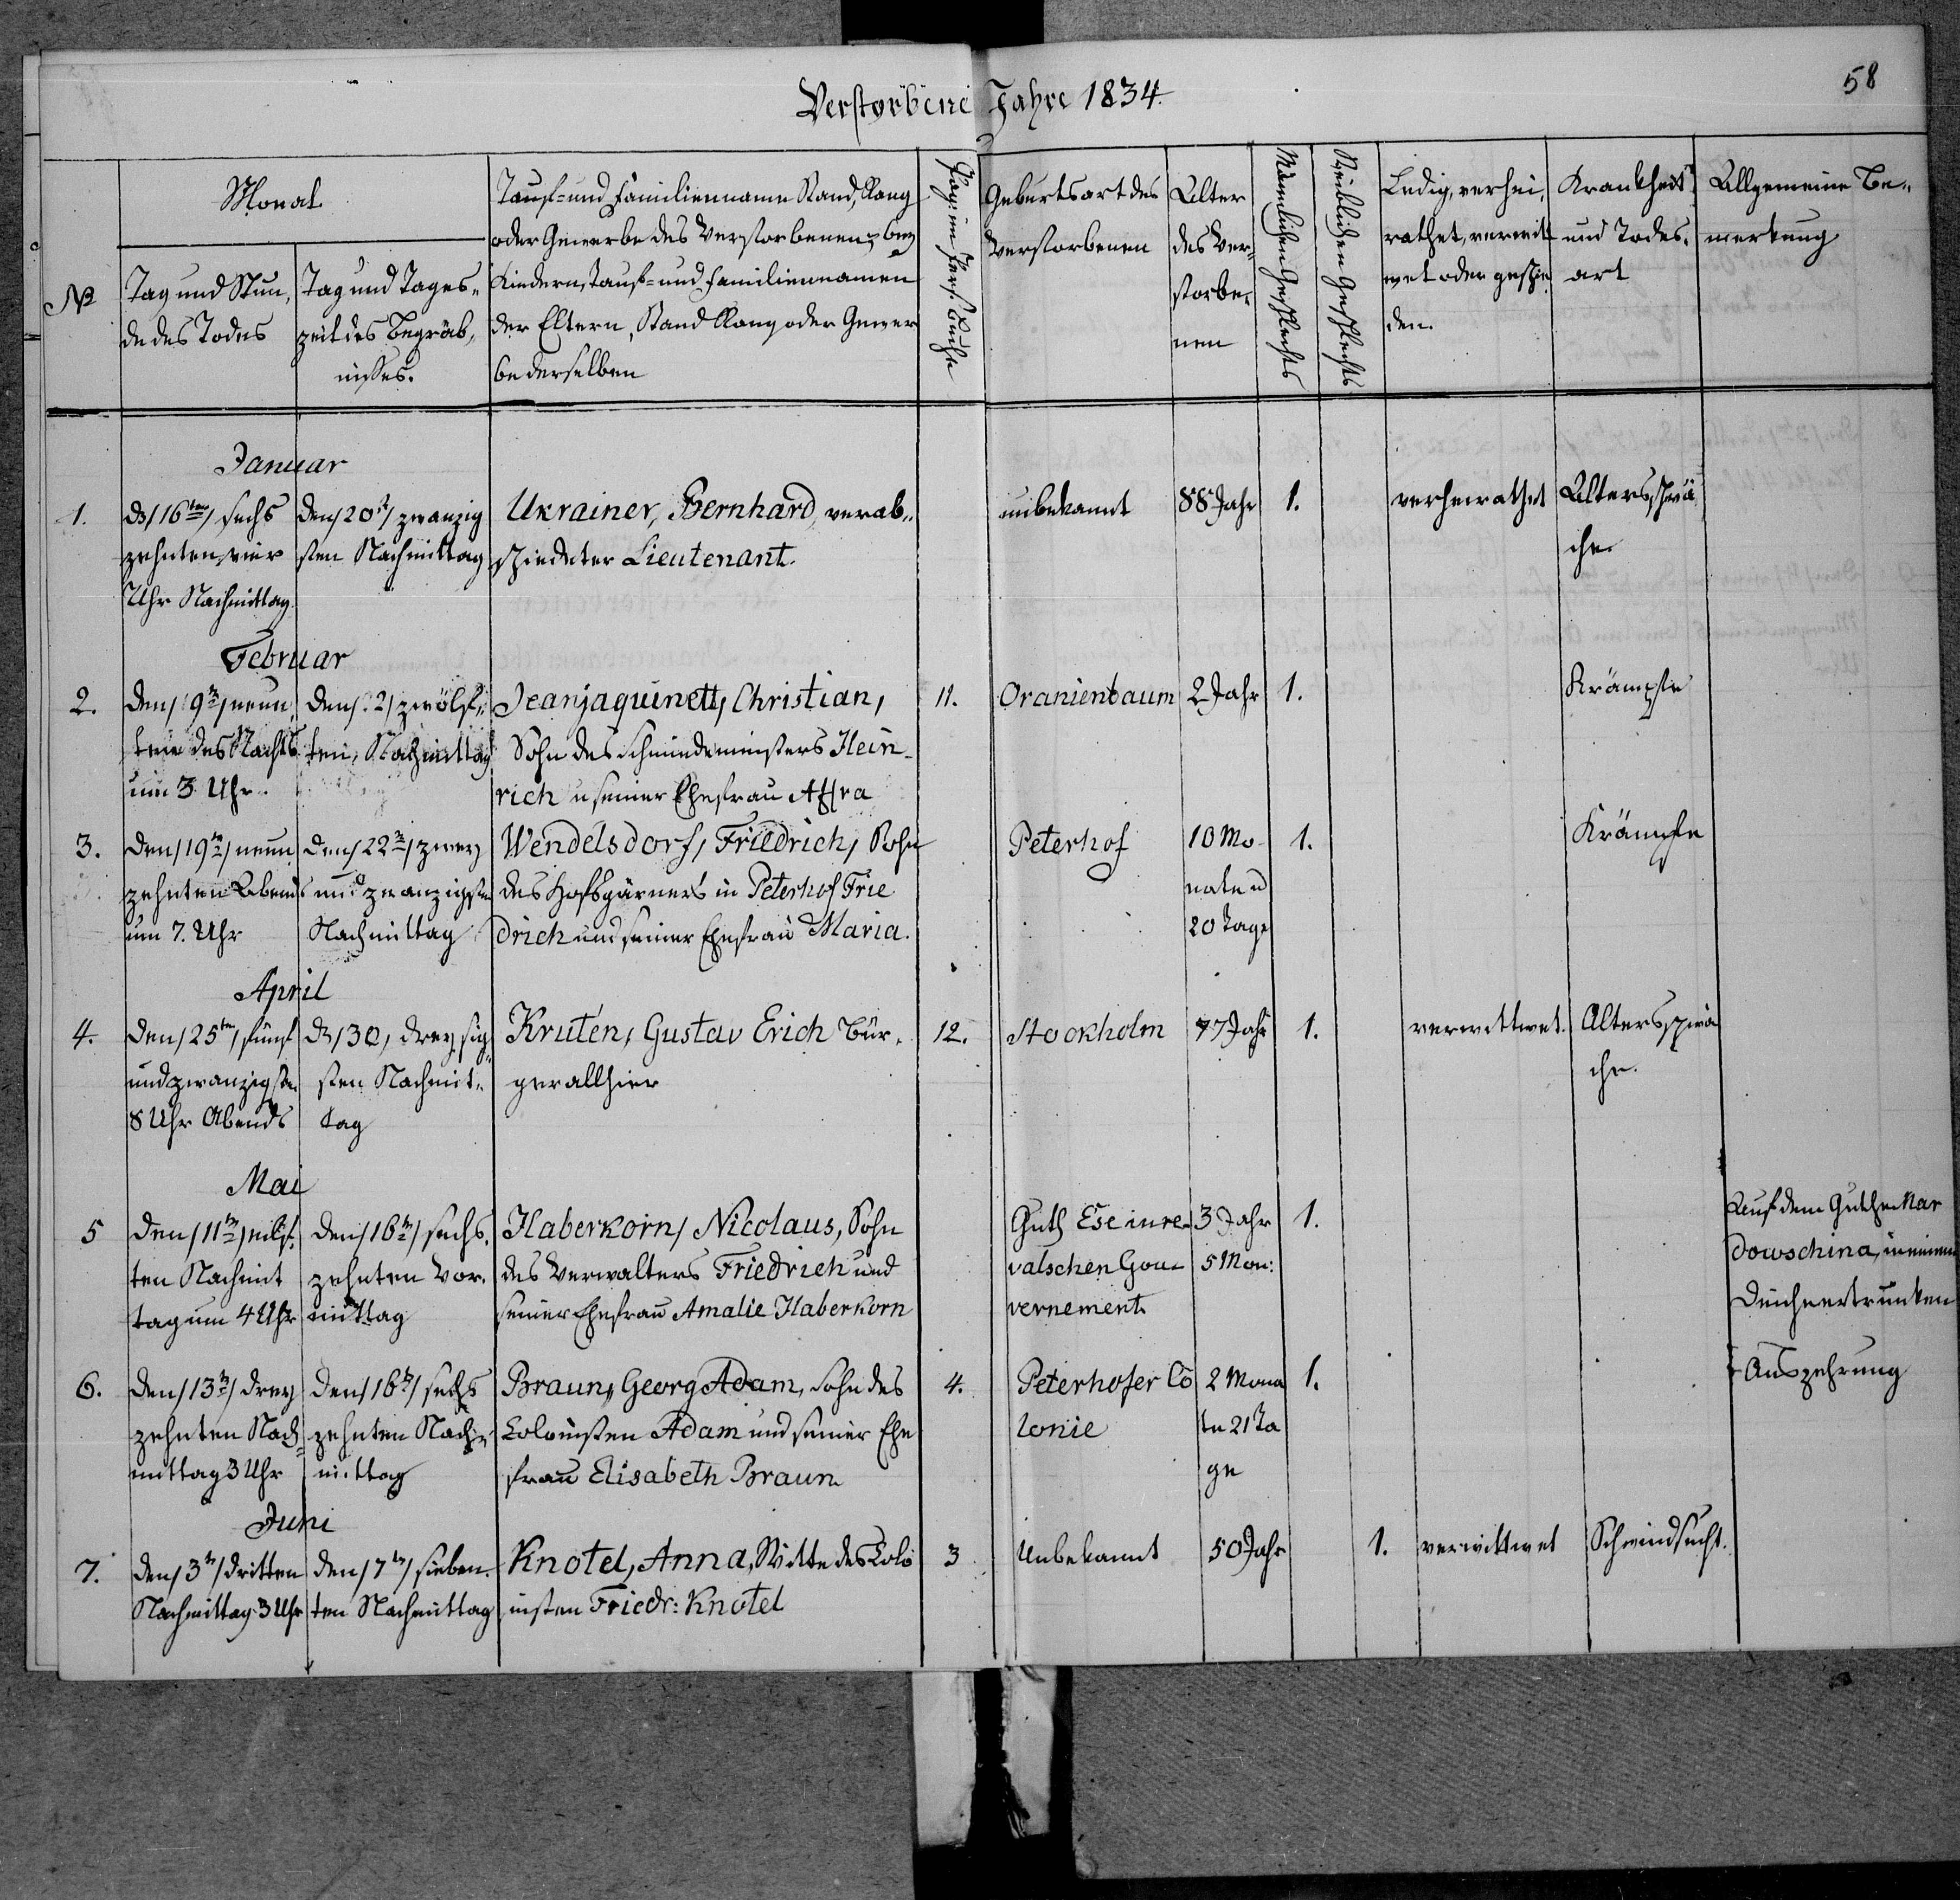 58
Verstorbene Jahre 1834.
№
Monat
Tag und Stun,
de des Todes
Tag und Tages,,
zeit des Begräb,
nisses.
Tauf- und Familienname Stand, Rang
oder Gewerbe des Verstorbenen, bey
Kindern, Tauf- und Familiennamen
der Eltern, Stand Rang oder Gewer
be derselben
Pag: im Pers: Buche
Geburtsort des
Verstorbenen
Alter
des Ver,,
storbe,
nen
Männlichen Geschlechts
Weiblichen Geschlechts
Ledig, verhei,
rathet, verwitt
wet oder geschie
den.
Krankheit
und Todes,
art
Allgemeine Be,,
merkung
Januar
1.
d /16ten/ sechs
zehnten, vier
Uhr Nachmittag.
den /20st/ zwanzig
sten Nachmittag
Ukrainer, Bernhard, verab,,
schiedeter Lieutenant.
unbekannt
88 Jahr
1.
verheirathet
Altersschwä
che
Februar
2.
den /9tn/ neun,
ten des Nachts
um 3 Uhr.
den /12/ zwölf,,
ten, Nachmittag
Jeanjaquinett, Christian,
Sohn des Schmiedemeisters Hein-
rich u seiner Ehefrau
11.
Oranienbaum
2 Jahr
1.
Krämpfe
3.
den /19tn/ neun
zehnten Abends
um 7. Uhr
den /22tn/ zwey
und zwanzigsten
Nachmittag
Wendelsdorf, Friedrich, Sohn
des Hofsgärners in Peterhof Frie
drich und seiner Ehefrau Maria.
Peterhof
10 Mo-
nate u
20 Tage
1.
Krämpfe
April
4.
den /25ten/ fünf
und zwanzigsten
8 Uhr Abends
d /30/ dreysig,,
sten Nachmit,,
tag
Kruten, Gustav Erich Bür,
ger allhier
12.
Stockholm
77 Jahr
1.
verwittwet.
Altersschwä
che.
Mai
5
den /11tn/ eilf,
ten Nachmit
tag um 4 Uhr
den /16tn/ sechs,
zehnten Vor,
mittag
Haberkorn, Nicolaus, Sohn
des Verwalters Friedrich und
seiner Ehefrau Amalie Haberkorn
Guth Ese in re-
valschen Gou-
vernement
3 Jahr
5 Mon:
1.
Auf dem Guthe Mar
dowschina, in einem
Teiche ertrunken
6.
den /13tn/ drey
zehnten Nach,,
mittag 3 Uhr
den /16tn/ sechs
zehnten Nach,,
mittag
Braun, Georg Adam, Sohn des
Colonisten Adam und seiner Ehe
frau Elisabeth Braun
4.
Peterhofer Co
lonie
2 Mona
te 21 Ta
ge
1.
Auszehrung
Juni
7.
den /3tn/ dritten
Nachmittag 3 Uhr
den /7tn/ sieben.
ten Nachmittag
Knotel, Anna, Witte des Colo
nisten Friedr: Knotel
3
Unbekannt
50 Jahr
1.
verwittwet
Schwindsucht.